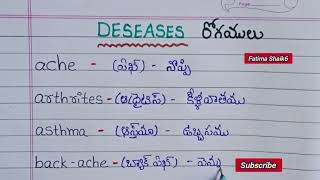 DESEASES రోగములు
Fatima Shaik6
ache - (ఏఖ్) - నొప్పి
arthrites - (ఆర్థ్రైటిస్) - కీళ్ళవాతము
asthma - (ఆస్త్మా) - ఉబ్బసము
back-ache - (బ్యాక్ ఏఖ్) - వెన్ను
Subscribe